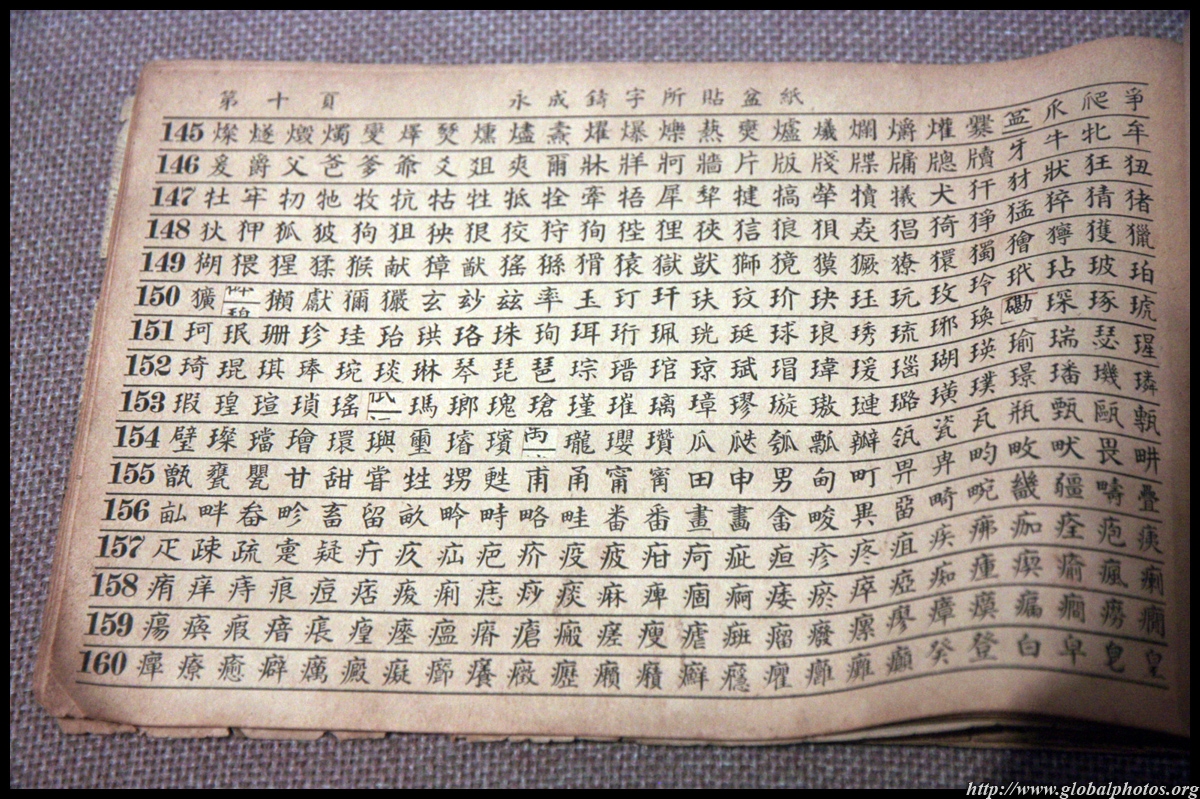 第十頁 永成鑄字所貼盆紙
145 燦燧燬燭燮燡燹燻燼燾燿爆爍爇爕爐爔爛爝爟爨 爪爬爭
146 爰爵父爸爹爺爻俎爽爾牀牂牁牆片版牋牒牗牕牘牙牛牝牟
147 牡牢牣牠牧牨牯牲牴牷牽牾犀犂犍犒犖犢犧犬犴犲狀狂狃
148 狄狎狐狓狗狙狹狠狡狩狥狴狸狹狺狼狽猋猖猗猙猛猝猜猪
149 猢猥猩猱猴献獐猷猺猻猾猿獄獃獅獍獏獗獠獧獨獪獰獲獵
150 獷 獺獻獼玁玄玅玆率玉玎玕玞玟玠玦玨玩玫玲玳玷玻珀
151 珂珉珊珍珪珆珙珞珠珣珥珩珮珖珽球琅琇琉琊瑍磡琛琢琥
152 琦琨琪琫琬琰琳琴琵琶琮瑨琯琼斌瑁瑋瑗瑙瑚瑛瑜瑞瑟瑆
153 瑕瑝瑄瑣瑤 瑪瑯瑰瑲瑾璀璃璋璆璇璈璉璐璜璞璟璠璣璘
154 璧璨璫璯環璵璽璿璸 瓏瓔瓚瓜瓞瓠瓢瓣瓴瓷瓦瓶甄甌甎
155 甑甕甖甘甜嘗甡甥甦甫甬甯甯田申男甸町甼畀畇畋畎畏畊
156 畆畔畚畛畜留畝畤略畦番畫畬畯異畸畹畿疆疇疊
157 疋疎疏疐疑疔疚疝疤疥疫疲疳疴疵疸疹疼疽疾痱痂痊疱痍
158 痏痒痔痕痘痞痠痢痣痧痰痲痺痼痾痿瘀瘁瘂痴瘇瘈瘉瘋
159 瘍瘓瘕瘖瘝瘟瘠瘡瘢瘥瘦瘧瘤癈瘰瘳瘴癀癆癇
160 癉療癒癖癘癜癡癤癢癥癧癩癪癬癮癯癱癰癲癸登白皁皃皇